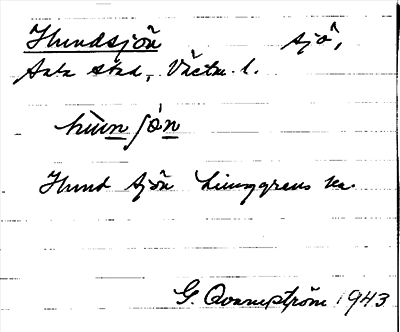 Hundsjön sjö,
Sala stad, Västm. l.
hùn sjö́n
Hund sjön Ljunggrens ka.
G. Qvarnström 1943